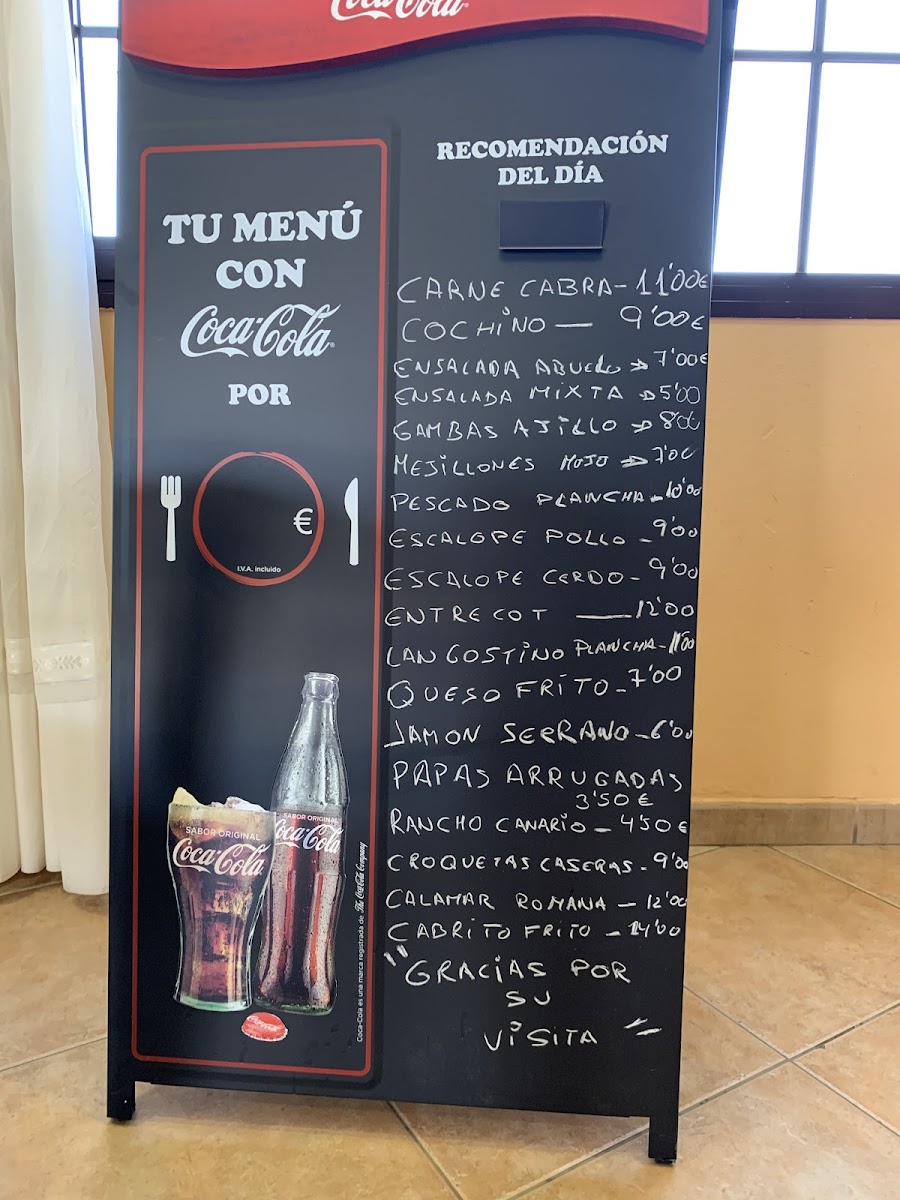 Coca-Cola
TU MENÚ
CON
Coca-Cola
POR
€
I.V.A. incluido
SABOR ORIGINAL
Coca-Cola
SABOR ORIGINAL
Coca-Cola
Coca-Cola es una marca registrada de The Coca-Cola Company
RECOMENDACIÓN
DEL DÍA
CARNE CABRA - 11'00€
COCHINO — 9'00€
ENSALADA ABUELO → 7'00€
ENSALADA MIXTA → 5'00
GAMBAS AJILLO → 8'00
MEJILLONES MOJO → 7'00
PESCADO PLANCHA - 10'00
ESCALOPE POLLO - 9'00
ESCALOPE CERDO - 9'00
ENTRECOT — 12'00
LANGOSTINO PLANCHA - 11'00
QUESO FRITO - 7'00
JAMON SERRANO - 6'00
PAPAS ARRUGADAS
3'50€
RANCHO CANARIO - 4'50€
CROQUETAS CASERAS - 9'00
CALAMAR ROMANA - 12'00
CABRITO FRITO - 14'00
"GRACIAS POR
SU
VISITA"